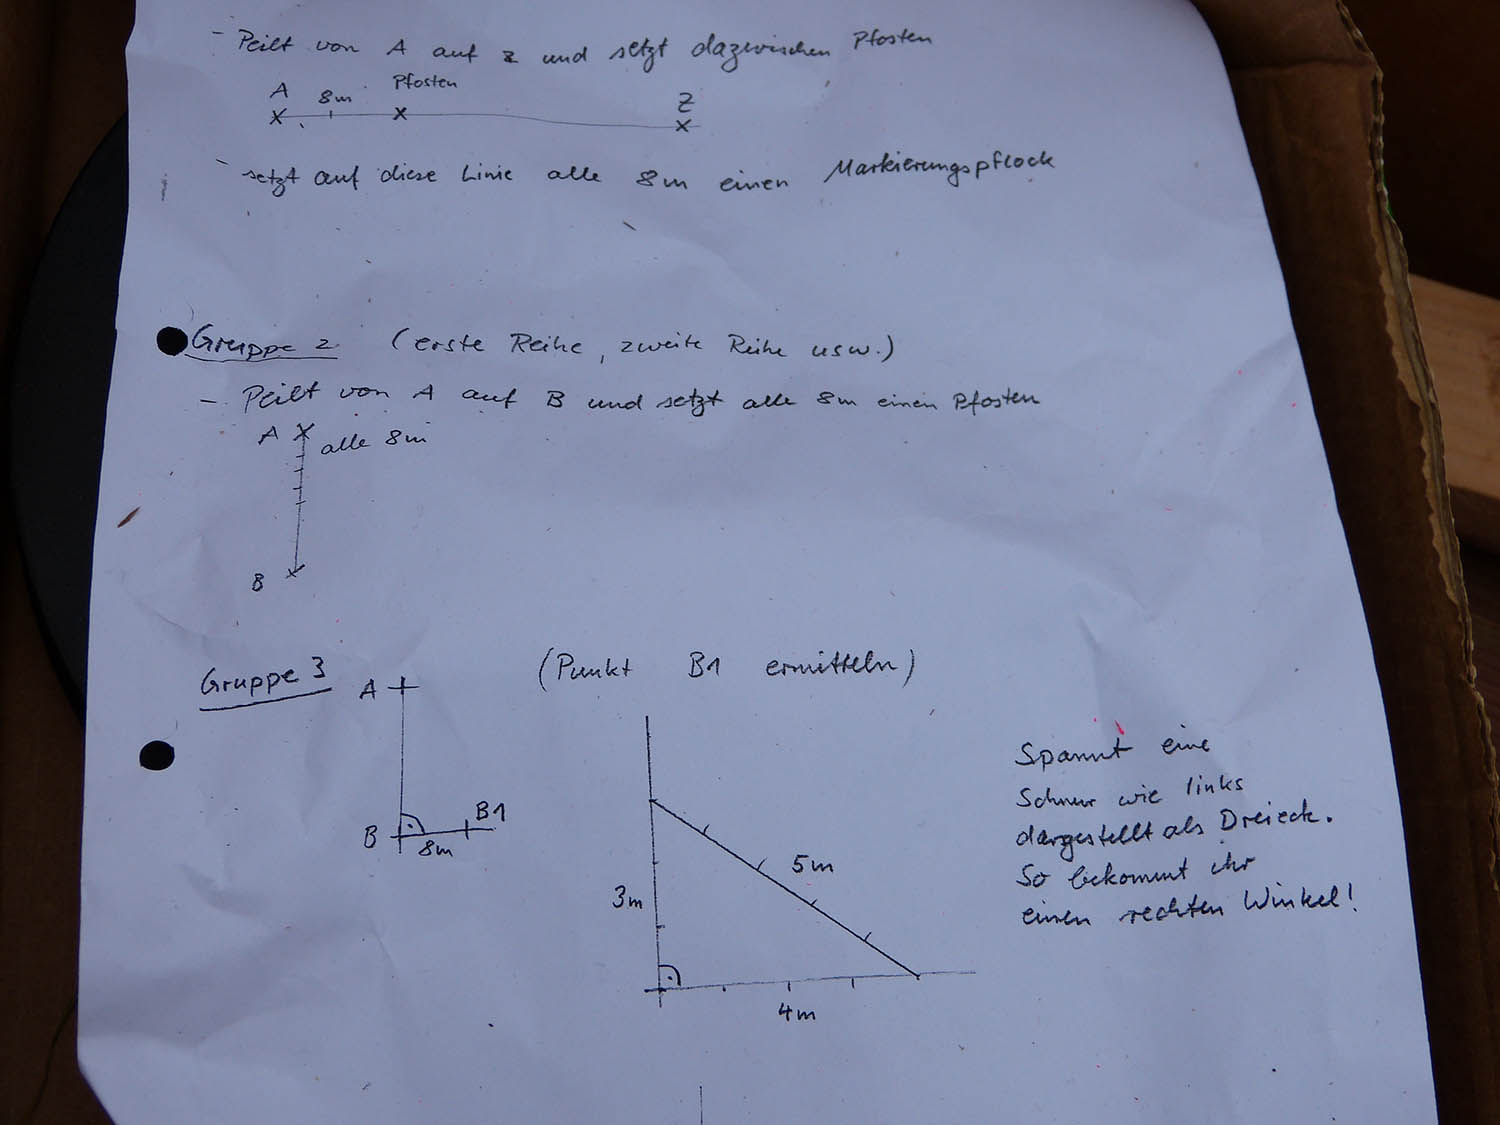 - Peilt von A auf Z und setzt dazwischen Pfosten
A 8m Pfosten Z
- setzt auf diese Linie alle 8m einen Markierungspflock
Gruppe 2 (erste Reihe, zweite Reihe usw.)
- Peilt von A auf B und setzt alle 8m einen Pfosten
A alle 8m
B
Gruppe 3 (Punkt B1 ermitteln)
A
B 8m B1
3m
5m
4m
Spannt eine
Schnur wie links
dargestellt als Dreieck.
So bekommt ihr
einen rechten Winkel!